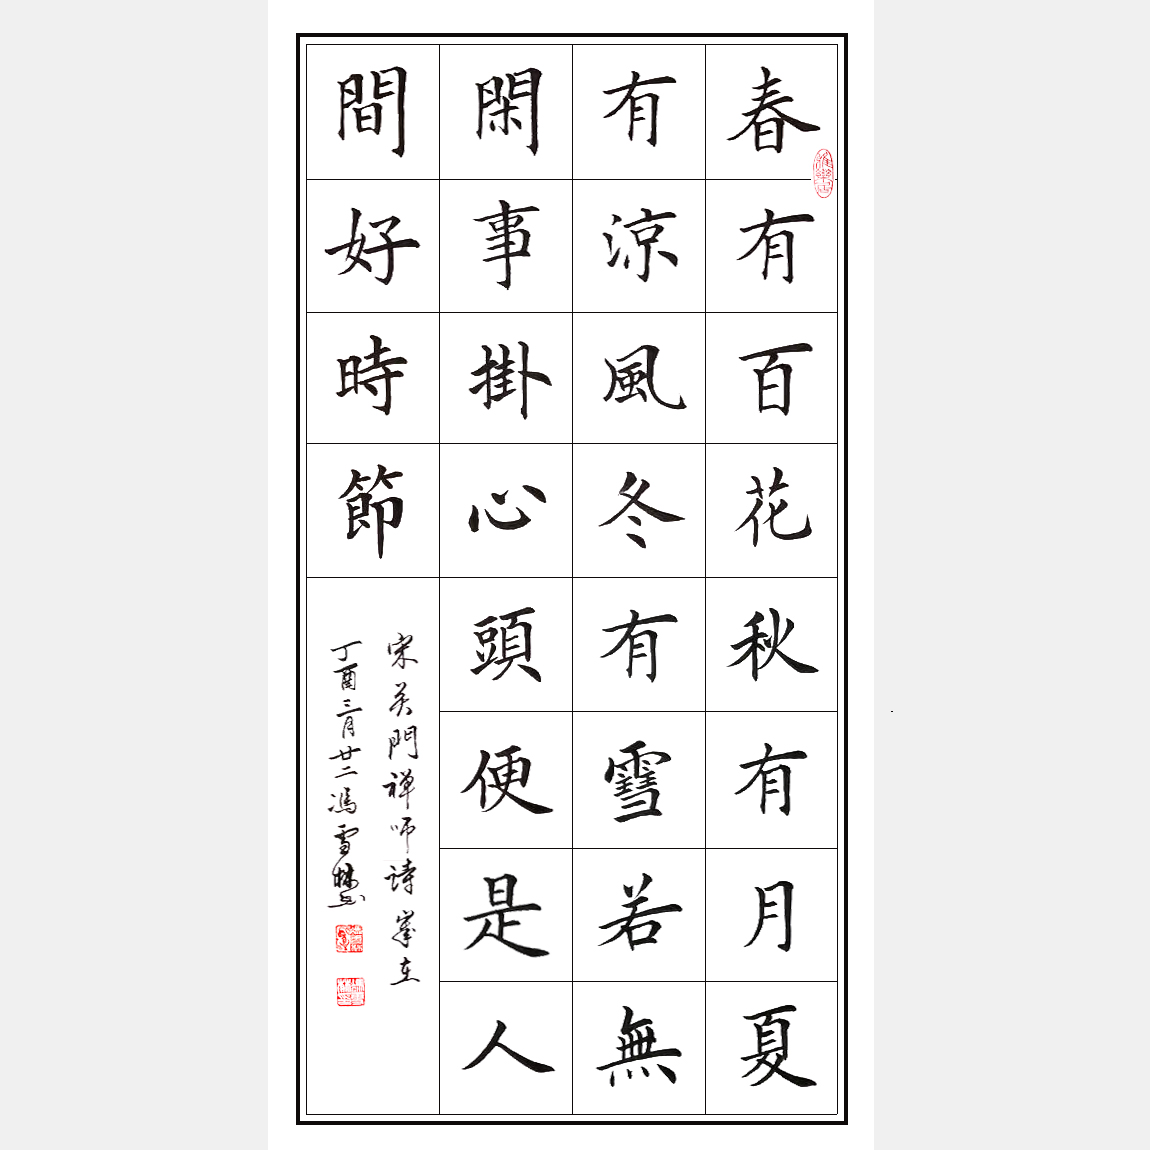 春有百花秋有月夏
有涼風冬有雪若無
閑事掛心頭便是人
間好時節
宋門禅师诗
丁酉三月廿二馮雪